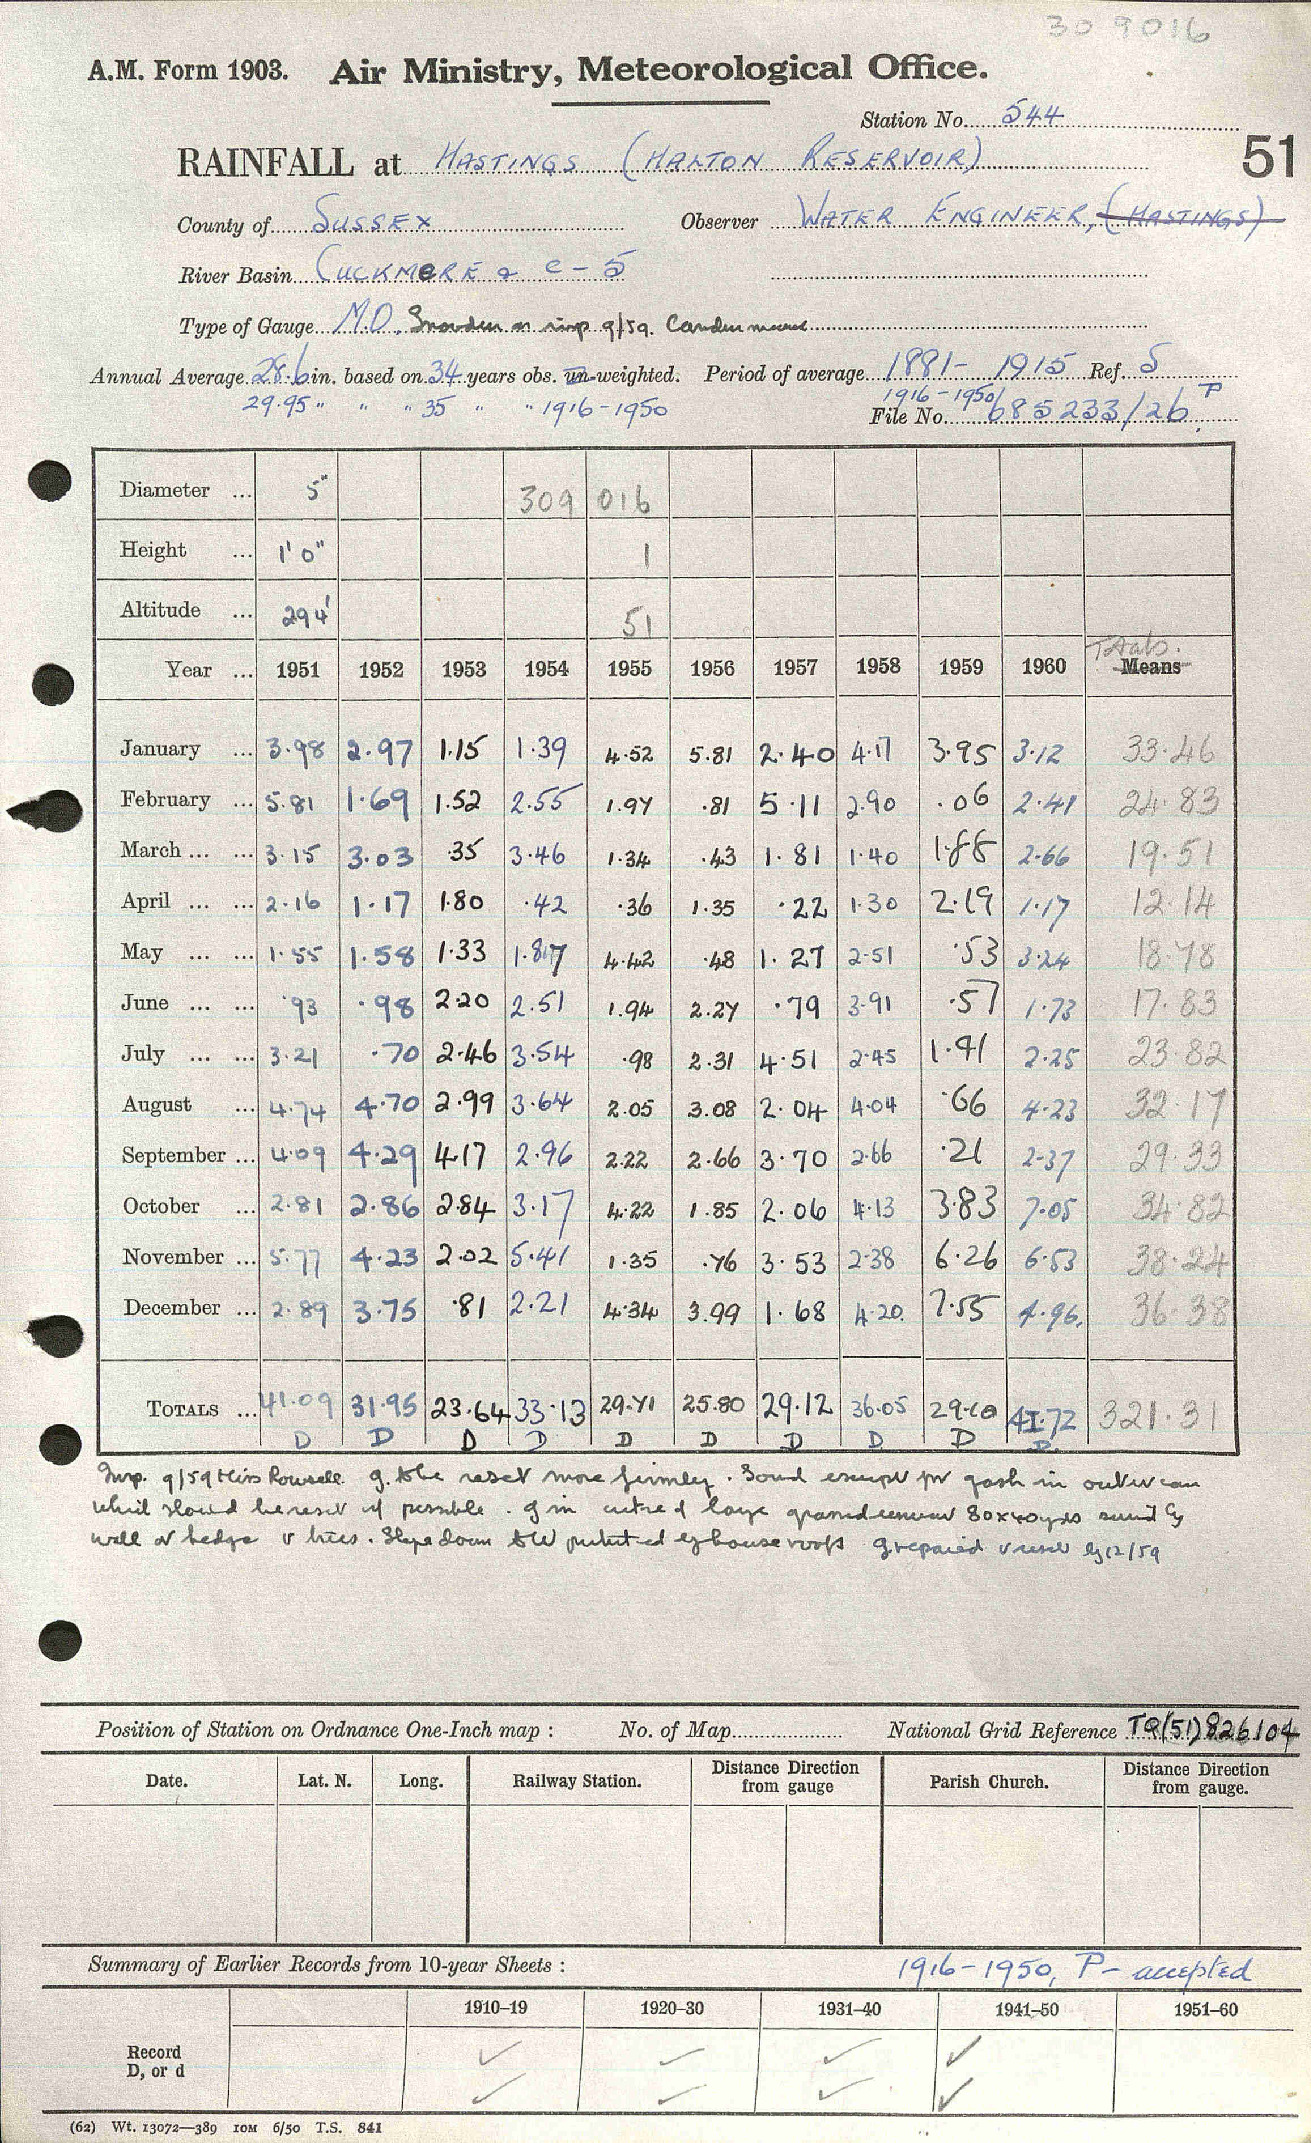 30 9016
A.M. Form 1903. Air Ministry, Meteorological Office.
Station No. 544
RAINFALL at HASTINGS (HALTON RESERVOIR) 51
County of SUSSEX Observer WATER ENGINEER, (HASTINGS)
River Basin CUCKMERE & C - 5
Type of Gauge M.O. Snowdon on insp 9/59. Camden
Annual Average 28.6 in. based on 34 years obs. un-weighted. Period of average 1881 - 1915 Ref. S
29.95 " " " 35 " " 1916-1950 1916-1950 P
File No. 685233/26
Diameter ... 5" 309 016
Height ... 1' 0" 1
Altitude ... 294' 51
Totals.
Year ... 1951 1952 1953 1954 1955 1956 1957 1958 1959 1960 Means
January ... 3.98 2.97 1.15 1.39 4.52 5.81 2.40 4.17 3.95 3.12 33.46
February ... 5.81 1.69 1.52 2.55 1.97 .81 5.11 2.90 .06 2.41 24.83
March ... ... 3.15 3.03 .35 3.46 1.34 .43 1.81 1.40 1.88 2.66 19.51
April ... ... 2.16 1.17 1.80 .42 .36 1.35 .22 1.30 2.19 1.17 12.14
May ... ... 1.55 1.58 1.33 1.87 4.42 .48 1.27 2.51 .53 3.24 18.78
June ... ... .93 .98 2.20 2.51 1.94 2.27 .79 3.91 .57 1.73 17.83
July ... ... 3.21 .70 2.46 3.54 .98 2.31 4.51 2.45 1.41 2.25 23.82
August ... 4.74 4.70 2.99 3.64 2.05 3.08 2.04 4.04 .66 4.23 32.17
September ... 4.09 4.29 4.17 2.96 2.22 2.66 3.70 2.66 .21 2.37 29.33
October ... 2.81 2.86 2.84 3.17 4.22 1.85 2.06 4.13 3.83 7.05 34.82
November ... 5.77 4.23 2.02 5.41 1.35 .76 3.53 2.38 6.26 6.53 38.24
December ... 2.89 3.75 .81 2.21 4.34 3.99 1.68 4.20. 7.55 4.96. 36.38
TOTALS ... 41.09 31.95 23.64 33.13 29.71 25.80 29.12 36.05 29.10 41.72 321.31
D D D D D D D D D D
Insp. 9/59 Miss Rousell. g. to be reset more firmly. Sound except for gash in outer can
which should be reset if possible. g in centre of large grassed 80x40yds surrd by
wall or hedge & trees. Slope down to W g repaired & reset by 12/59
Position of Station on Ordnance One-Inch map : No. of Map National Grid Reference TQ(51)826104
Date. Lat. N. Long. Railway Station. Distance Direction from gauge Parish Church. Distance Direction from gauge.
Summary of Earlier Records from 10-year Sheets : 1916-1950, P - accepted
1910–19 1920–30 1931–40 1941–50 1951–60
Record
D, or d
(62) Wt. 13072—389 10M 6/50 T.S. 841